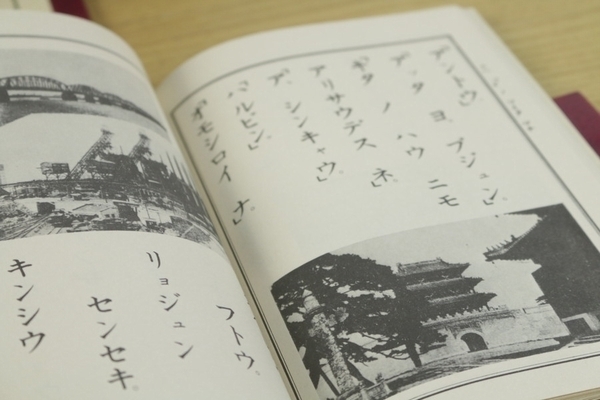 アントウ。
アッタ ヨ。 ブジュン。」
「キタ ノ ハウ ニモ
アリサウデス ネ。」
「ア、 シンキャウ。」
「ハルビン。」
「オモシロイ ナ。
フトウ。
リョジュン
センセキ。
キンシウ